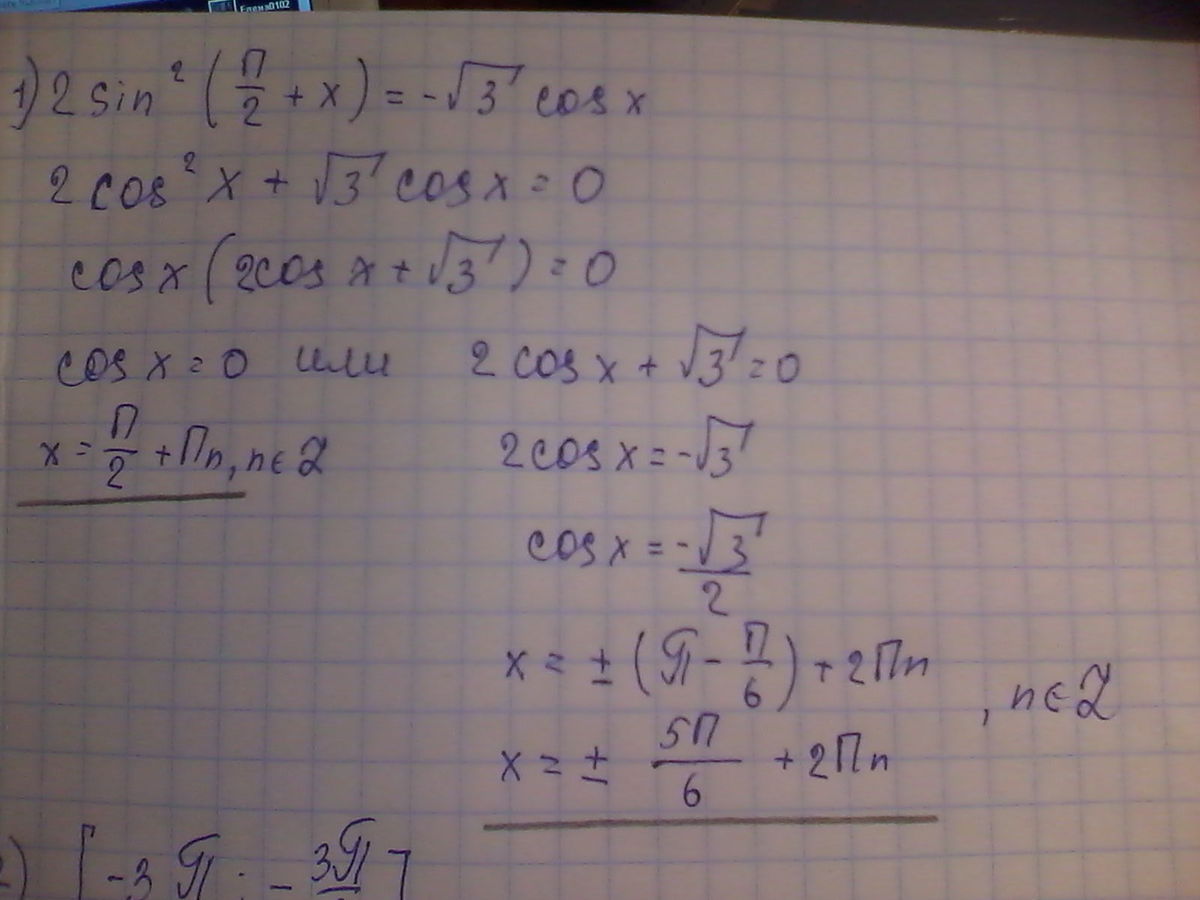 Елена0102
1) 2 sin² (П/2 + x) = -√3 cos x
2 cos² x + √3 cos x = 0
cos x (2cos x + √3) = 0
cos x = 0 или 2 cos x + √3 = 0
x = П/2 + Пn, n ∈ Z 2 cos x = -√3
cos x = -√3/2
x = ± (π - П/6) + 2Пn
, n ∈ Z
x = ± 5П/6 + 2Пn
2) [-3π; -3π/